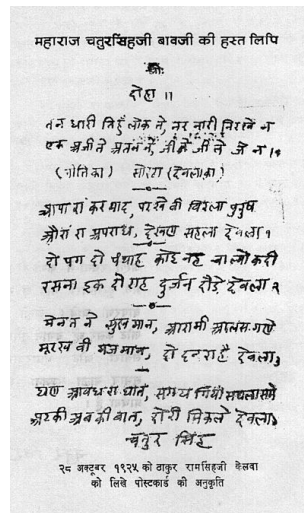 महाराज चतुरसिंहजी बावजी की हस्त लिपि
श्रीः
दोहा ॥
तन धारी तिहुँ लोक ने, नर नारी निरखे न
एक
(नीतिका) सोरठा (देवलाका)
आपारां कर याद, परखे वी विरला पुरुष
औरां रा अपराध, देखण सहला देवला १
दो पग दो पथाह कोई नह चालो करी
रसना इक दो राह दुर्जन दौड़े देवला २
मेनत ने सुख मान, आरामी आलस गणे
मूरख वी मजमान, दो दनरा है देवला ३
घण आवध रा घात,
अटकी अब की वात, दोरी निकले देवला
चतुर सिंह
२८ अक्टूबर १९२५ को ठाकुर रामसिंहजी केलवा
को लिखे पोस्टकार्ड की अनुकृति